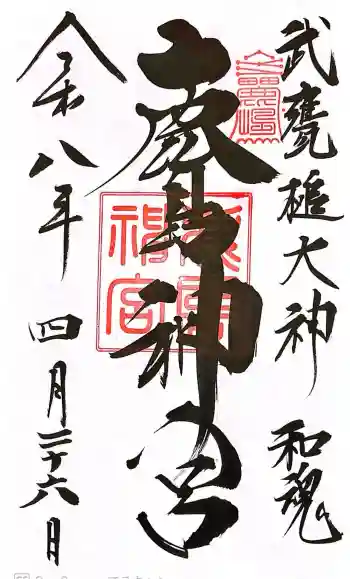 武甕槌大神 和魂
鹿島神宮
令和八年 四月二十六日